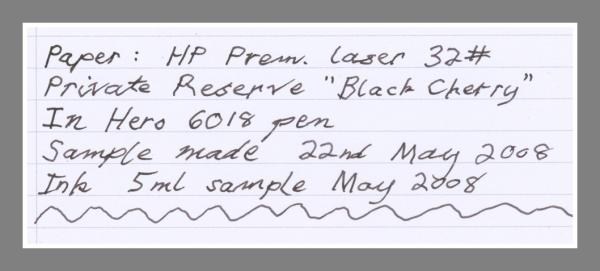 Paper: HP Prem. laser 32#
Private Reserve "Black Cherry"
In Hero 6018 pen
Sample made 22nd May 2008
Ink 5ml sample May 2008